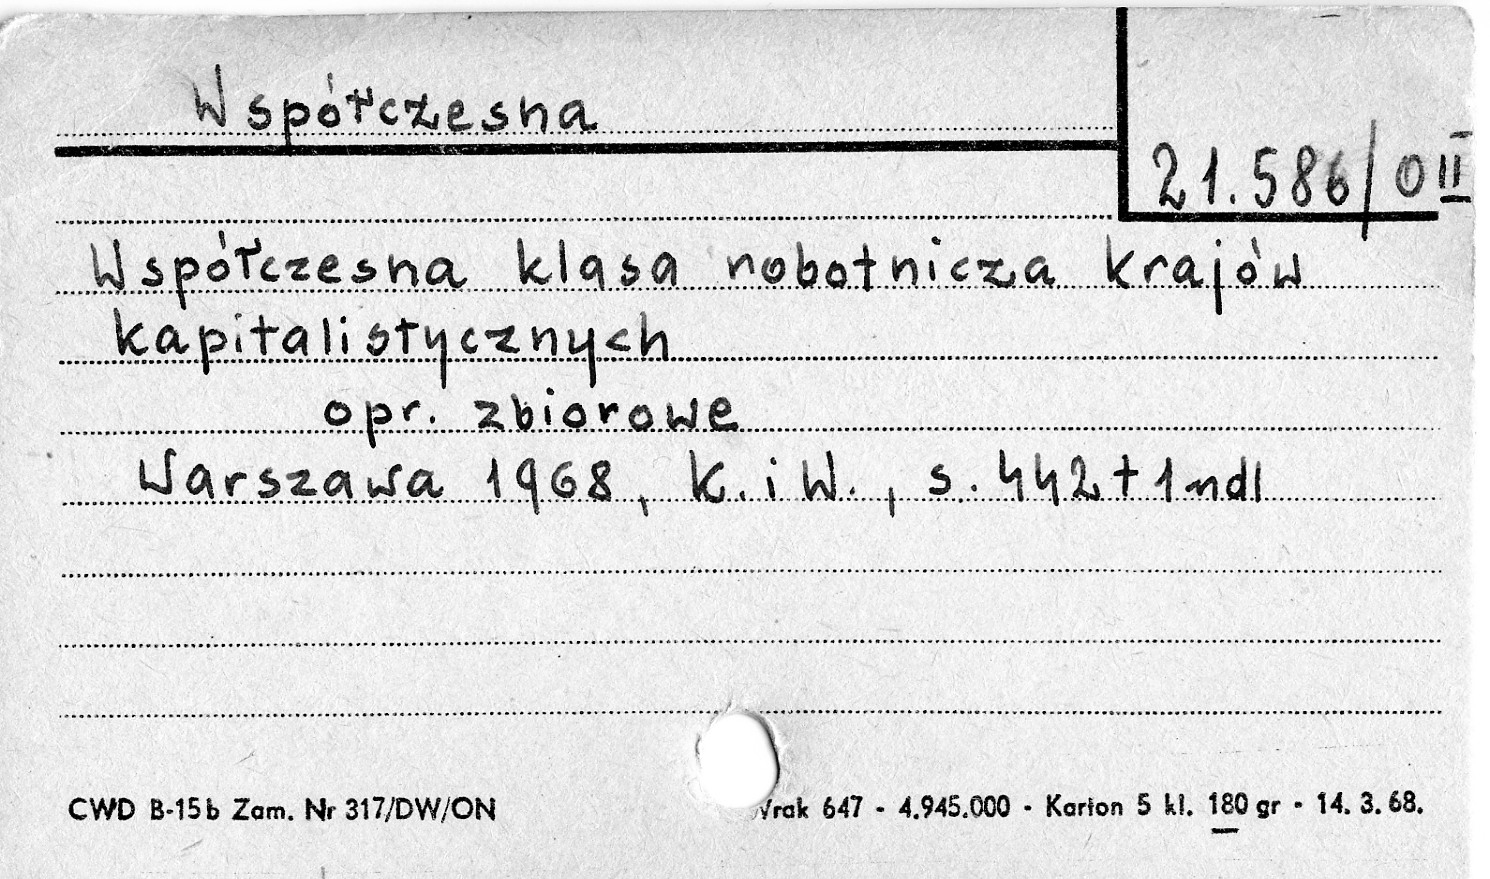 Współczesna
21.586/0 II
Współczesna klasa robotnicza krajów
kapitalistycznych
opr. zbiorowe
Warszawa 1968, K. i W., s. 442 + 1 ndl
CWD B-15b Zam. Nr 317/DW/ON
4.945.000 - Karton 5 kl. 180 gr - 14. 3. 68.